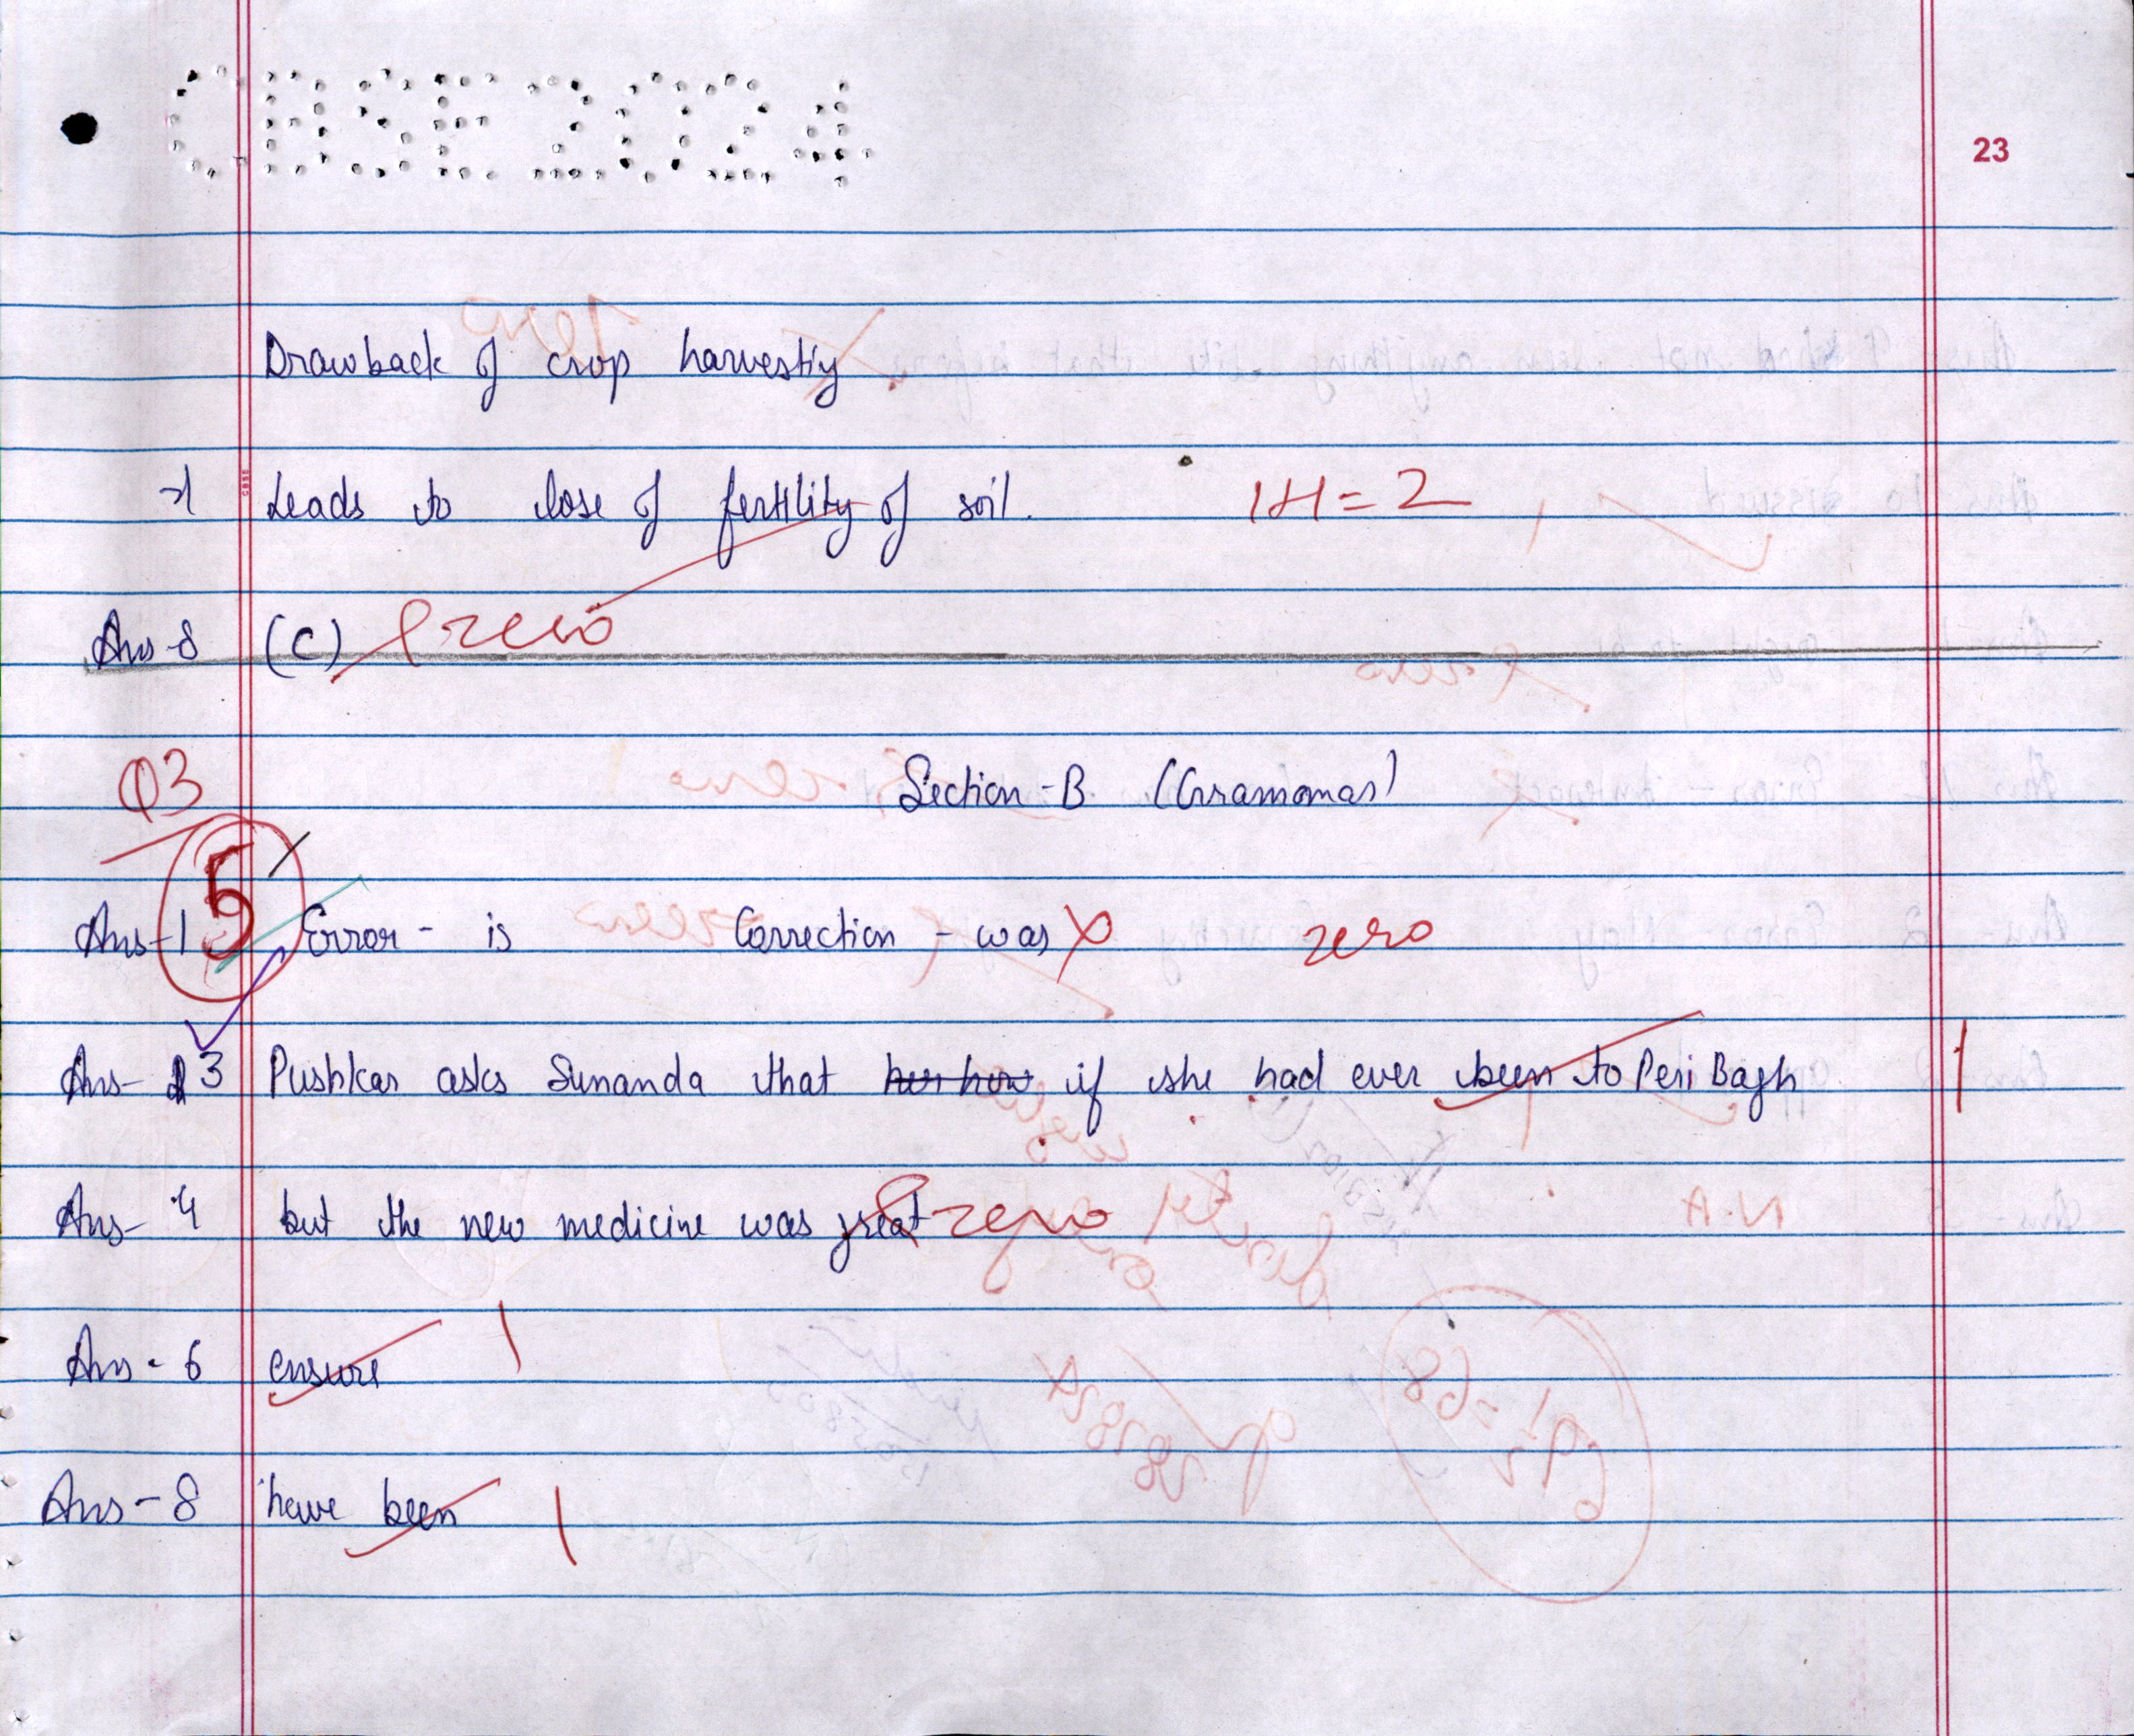 CBSE 2024
23
Drawback of crop harvestiy
→1 Leads to lose of fertility of soil. 1+1=2
Ans-8 (C) zero
Q3 Section-B (Grammomas)
5
Ans-1 Error - is Correction - was zero
Ans-3 Pushkar asks Sunanda that her how if she had ever been to Peri Bagh 1
Ans-4 but the new medicine was great zero
Ans-6 ensure 1
Ans-8 have been 1